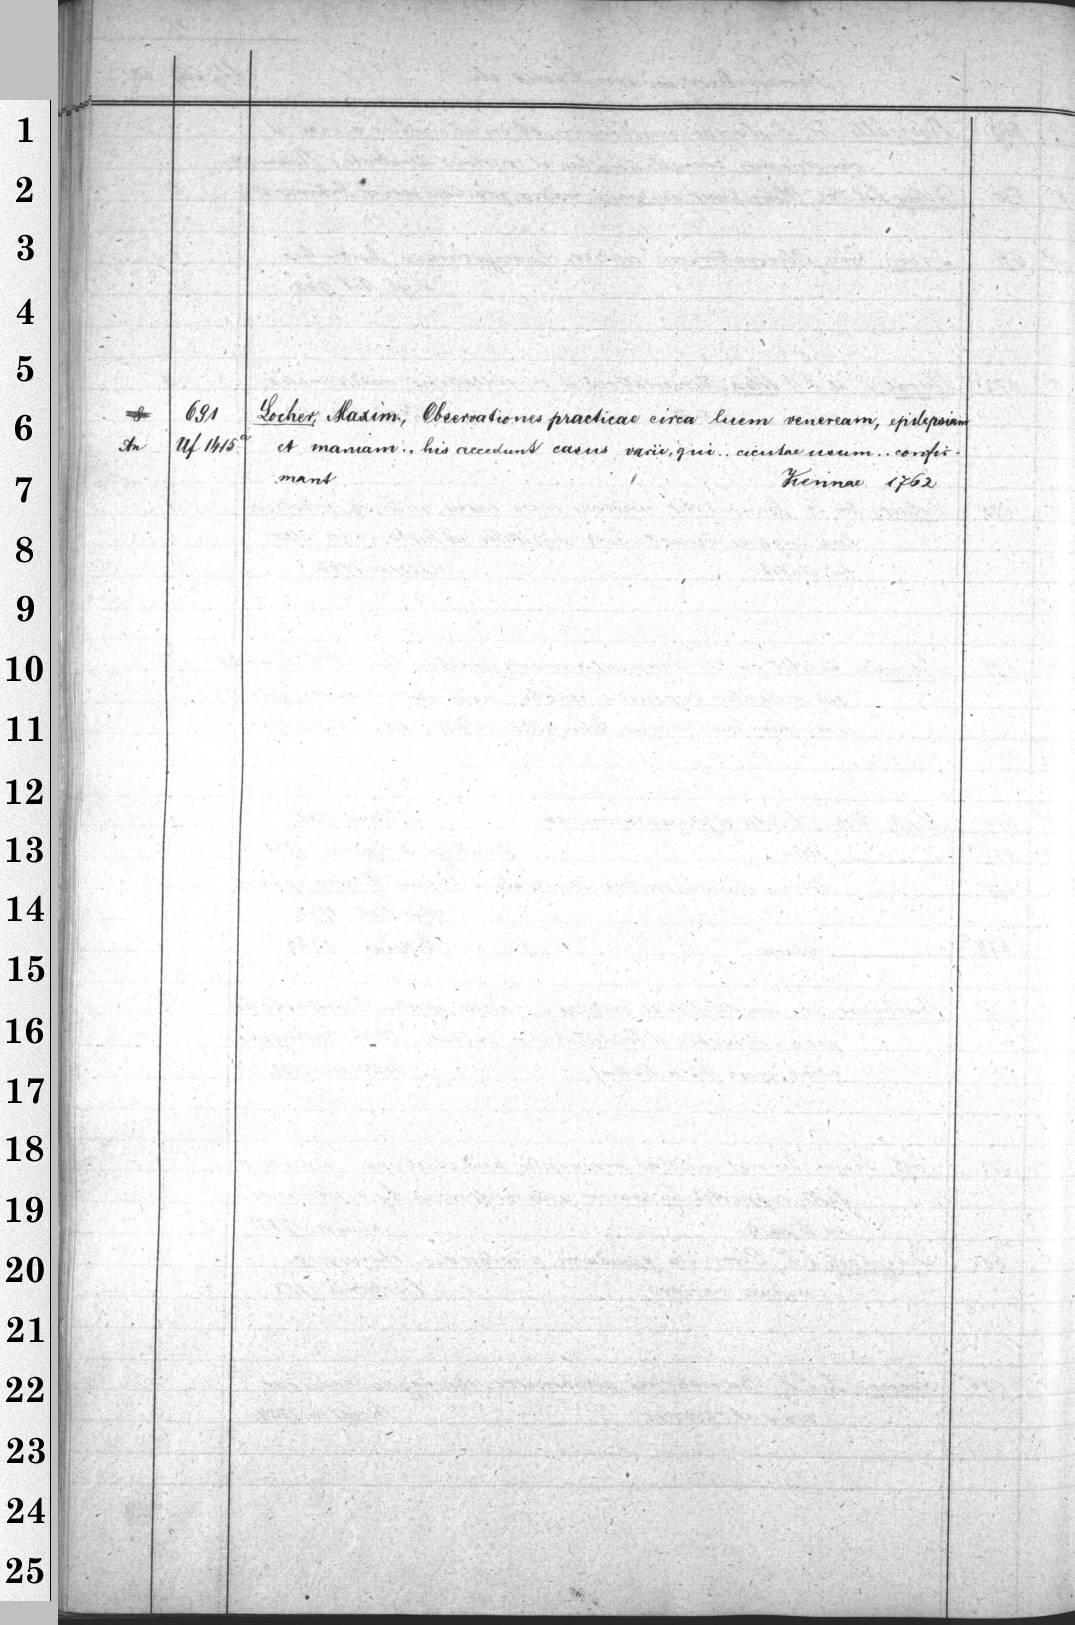 1
2
3
4
5
6
8 691 Locher, Maxim., Observationes practicae circa luem veneream, epilepsiam
An Uf 1415a et maniam .. his accedunt casus varii, qui .. cicutae usum .. confir-
mant Viennae 1762
7
8
9
10
11
12
13
14
15
16
17
18
19
20
21
22
23
24
25